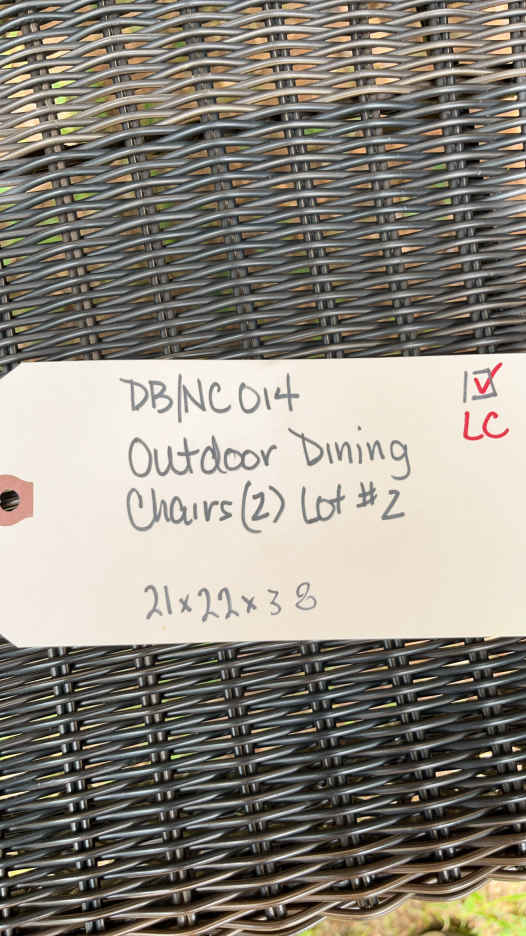 DB/NC014
1 ☑
LC
Outdoor Dining
Chairs (2) Lot #2
21x22x38